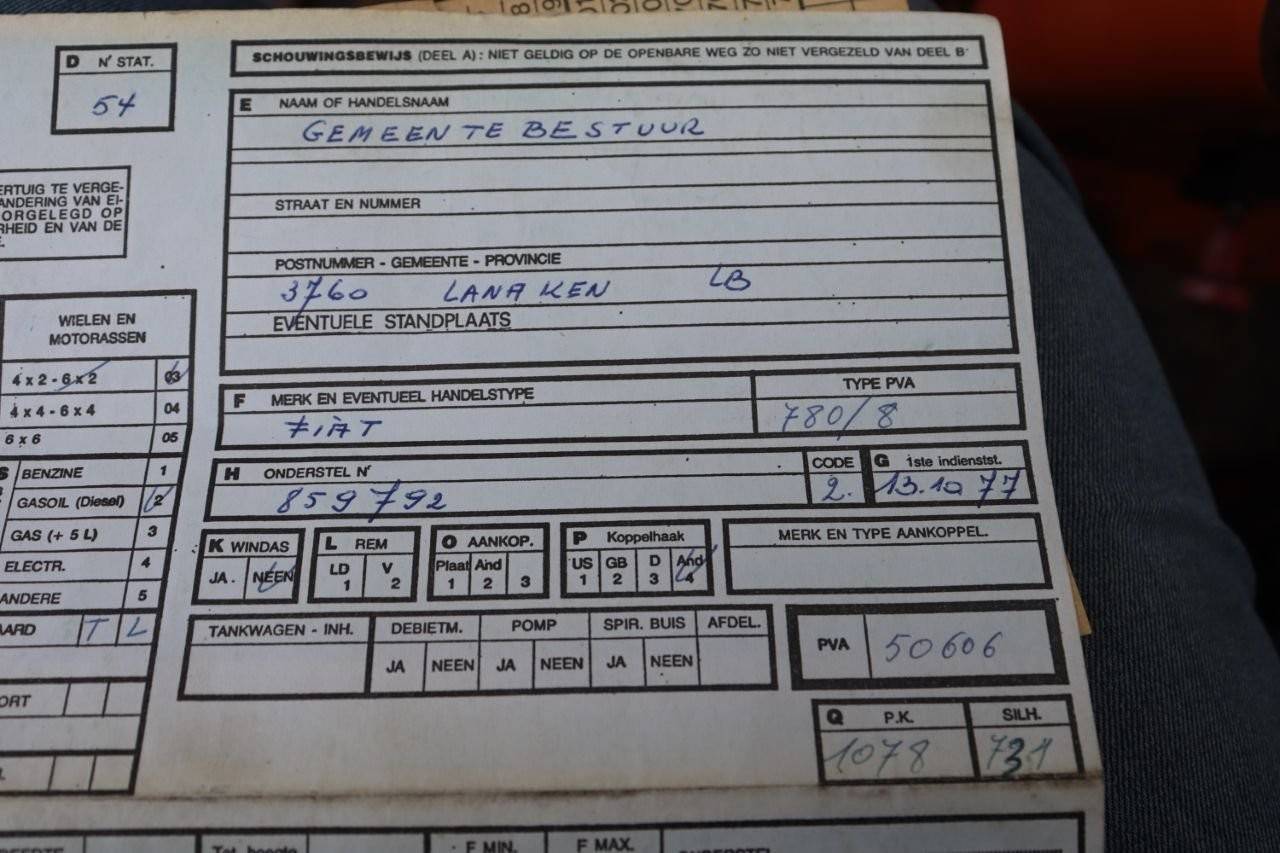 SCHOUWINGSBEWIJS (DEEL A): NIET GELDIG OP DE OPENBARE WEG ZO NIET VERGEZELD VAN DEEL B
D N' STAT.
54
E NAAM OF HANDELSNAAM
GEMEENTE BESTUUR
ERTUIG TE VERGE-
ANDERING VAN EI-
ORGELEGD OP
RHEID EN VAN DE
STRAAT EN NUMMER
POSTNUMMER - GEMEENTE - PROVINCIE
3760 LANAKEN LB
EVENTUELE STANDPLAATS
WIELEN EN
MOTORASSEN
4 x 2 - 6 x 2 03
4 x 4 - 6 x 4 04
6 x 6 05
S BENZINE 1
GASOIL (Diesel) 2
GAS (+ 5 L) 3
ELECTR. 4
ANDERE 5
AARD T L
ORT
F MERK EN EVENTUEEL HANDELSTYPE
FIAT
TYPE PVA
780/8
H ONDERSTEL N'
859792
CODE
2.
G 1ste indienstst.
13.10 77
K WINDAS
JA. NEEN
L REM
LD V
1 2
O AANKOP.
Plaat And
1 2 3
P Koppelhaak
US GB D And
1 2 3 4
MERK EN TYPE AANKOPPEL.
TANKWAGEN - INH. DEBIETM. POMP SPIR. BUIS AFDEL.
JA NEEN JA NEEN JA NEEN
PVA 50606
Q P.K. SILH.
1078 731
Tot. hoogte F MIN. F MAX.